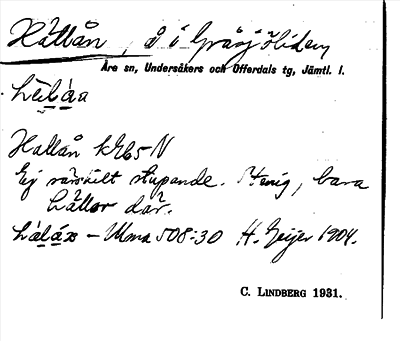 Hällån, å i Gråsjöliden
Åre sn, Undersåkers och Offerdals tg, Jämtl. l.
Hallån
Ej särskilt stupande. Stenig, bara
hällar där.
– Ulma 508:30 H. Geijer 1904.
C. LINDBERG 1931.